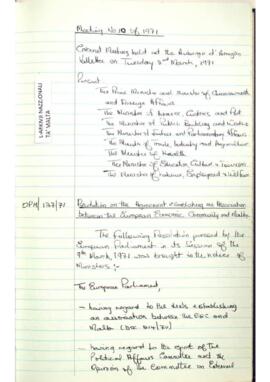 Meeting No 10 of 1971
Cabinet Meeting held at the Auberge d'Aragon
Valletta on Tuesday 2nd March, 1971
L-ARKIVJI NAZZJONALI
TA' MALTA
Present
The Prime Minister and Minister of Commonwealth
and Foreign Affairs
The Minister of Finance, Customs and Port
The Minister of Public Building and Works
The Minister of Justice and Parliamentary Affairs
The Minister of Trade, Industry and Agriculture
The Minister of Health
The Minister of Education Culture & Tourism
The Minister of Labour, Employment & Welfare
OPM/ 137/71
Resolution on the Agreement establishing an Association
between the European Economic Community and Malta
The following Resolution passed by the
European Parliament in its Session of the
9th March, 1971 was brought to the notice of
Ministers :-
The European Parliament,
- having regard to the texts establishing
an association between the EEC and
Malta
- having regard to the report of the
Political Affairs Committee and the
Opinion of the Committee on External